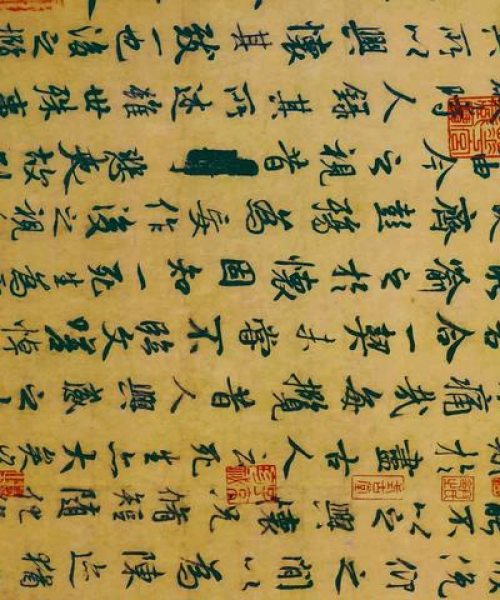 俛仰之間以為陳迹猶
不以之興懷況脩短隨化
於盡古人云死生亦大矣
痛哉每攬昔人興感之
合一契未嘗不臨文嗟悼
喻之於懷固知一死生為
齊彭殤為妄作後之視
由今之視昔悲夫故列
時人錄其所述雖世殊事
所以興懷其致一也後之攬